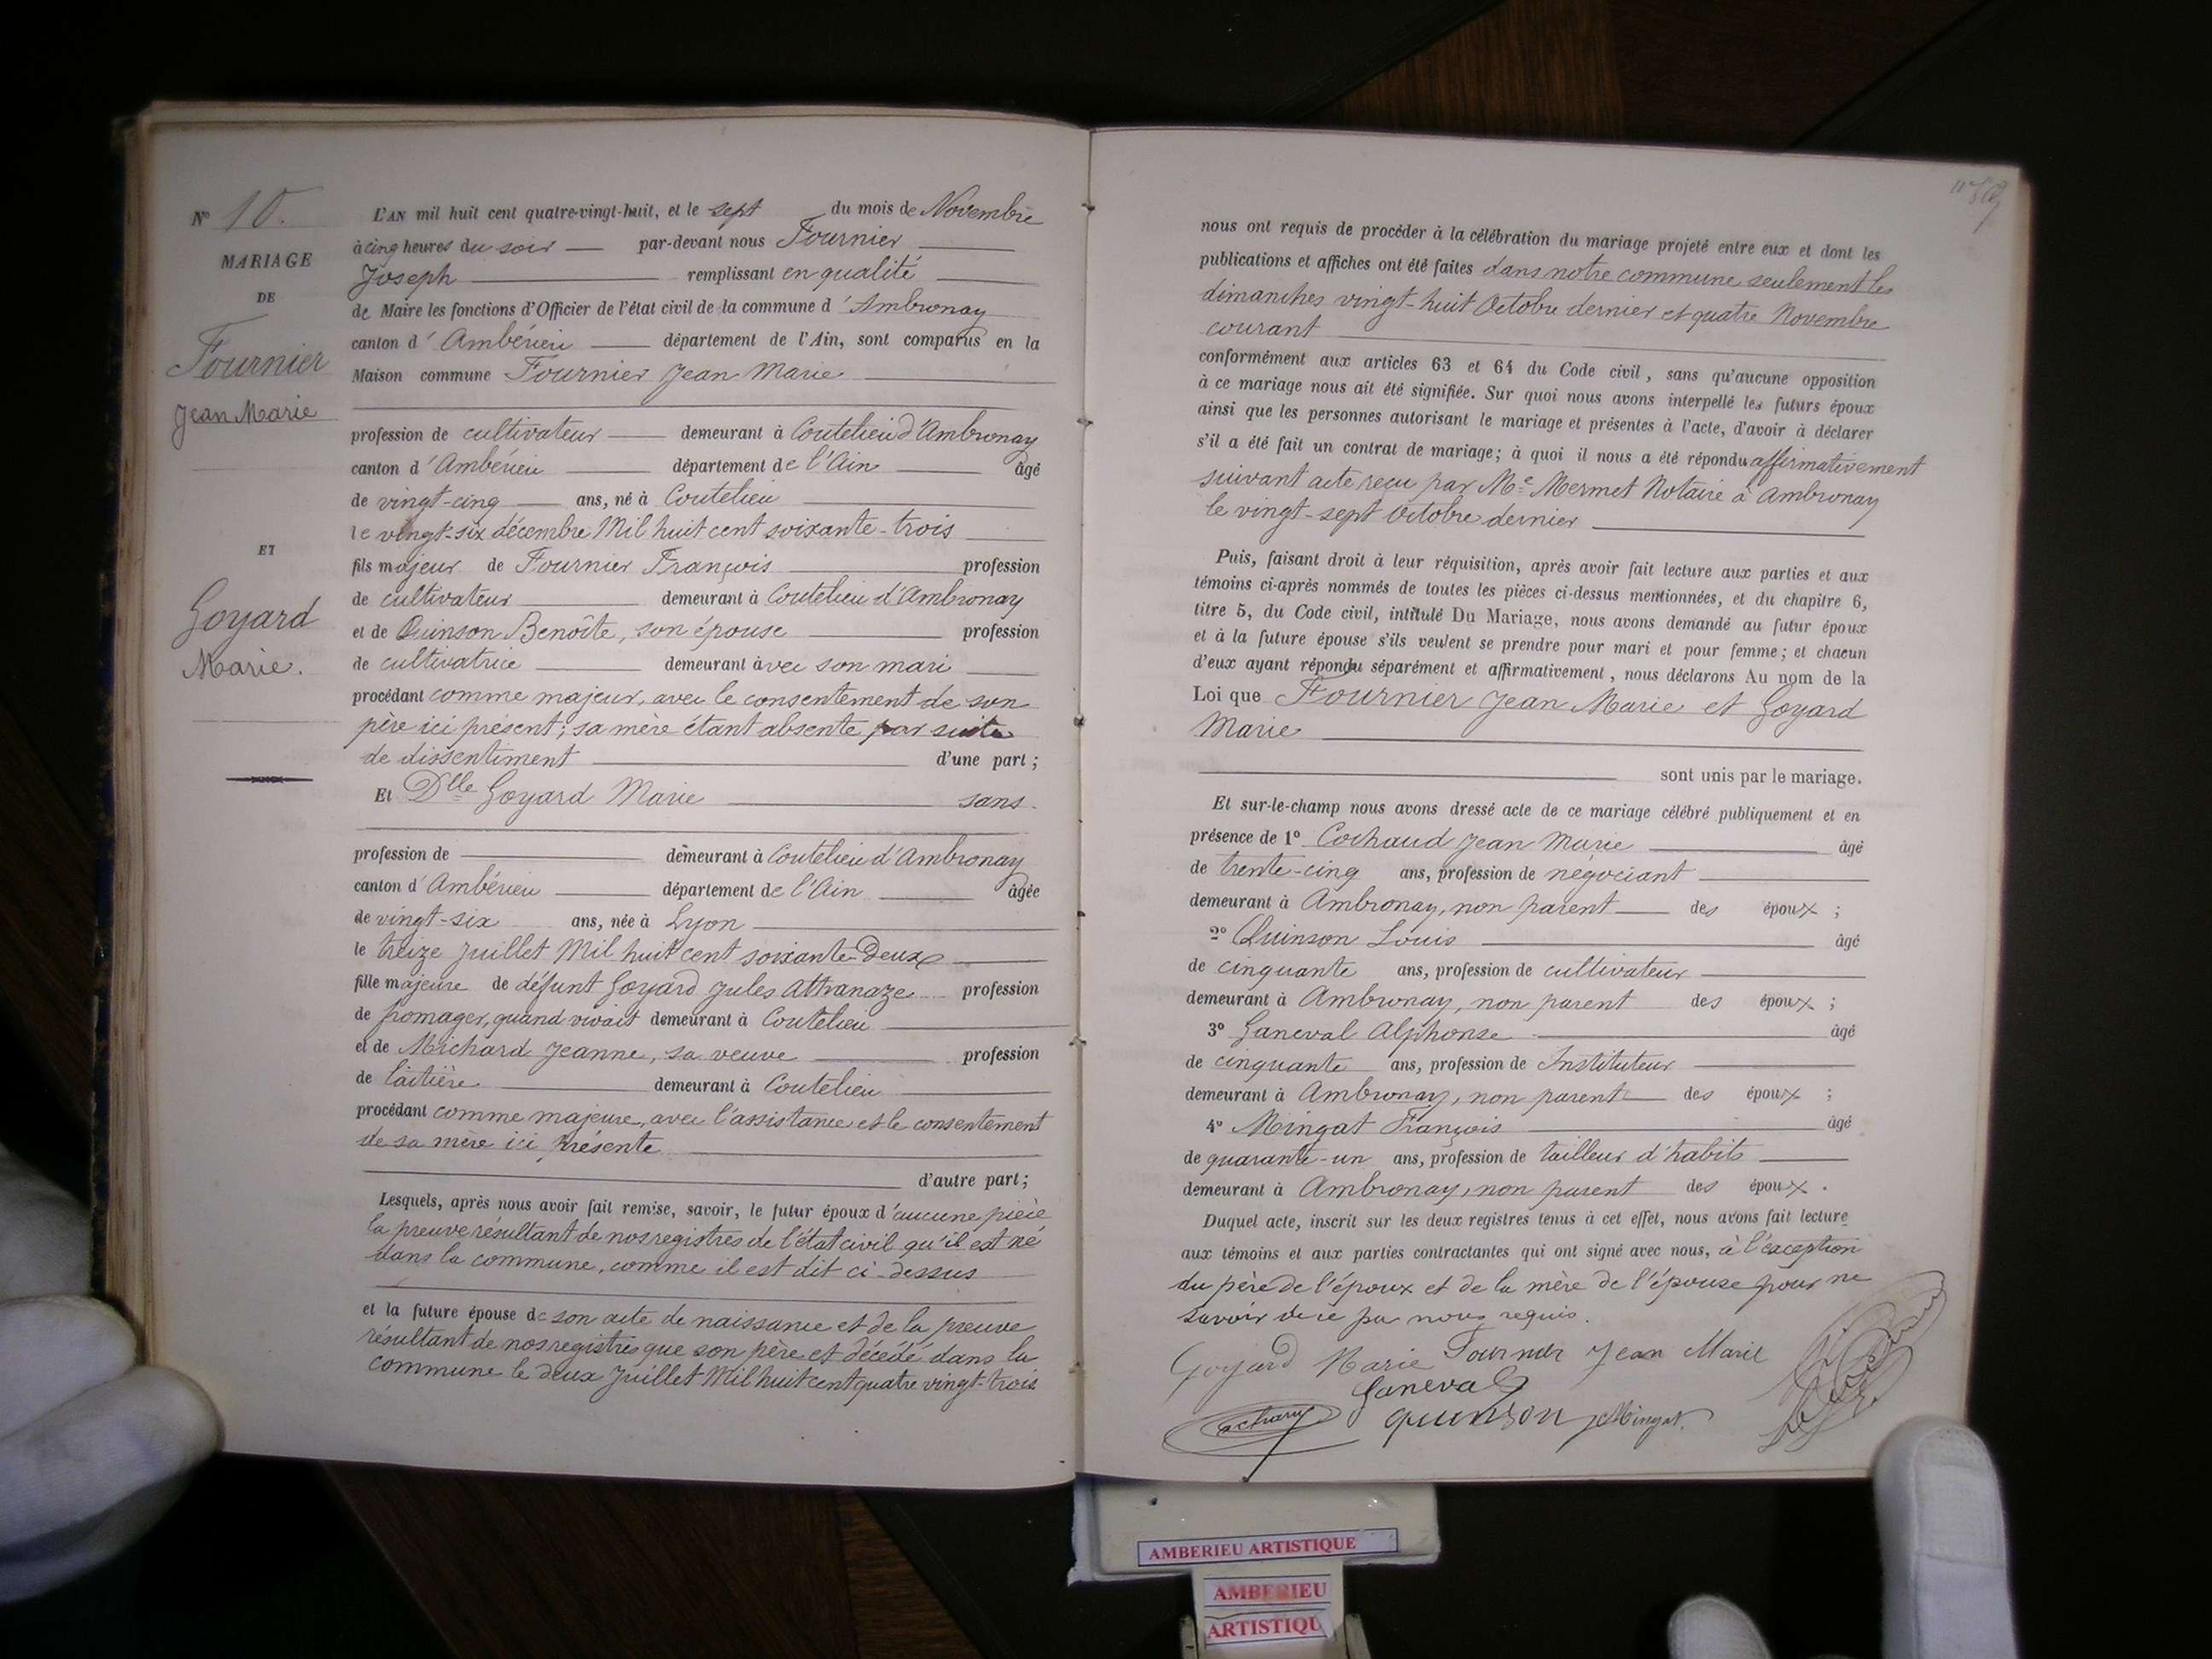 N° 10.
MARIAGE
DE
Fournier
Jean Marie
ET
Goyard
Marie.
L'AN mil huit cent quatre-vingt-huit, et le sept du mois de Novembre
à cinq heures du soir par-devant nous Fournier
Joseph remplissant en qualité
de Maire les fonctions d'Officier de l'état civil de la commune d'Ambronay
canton d'Ambérieu département de l'Ain, sont comparus en la
Maison commune Fournier Jean Marie
profession de cultivateur demeurant à Coutelieu d'Ambronay
canton d'Ambérieu département de l'Ain âgé
de vingt-cinq ans, né à Coutelieu
le vingt-six décembre Mil huit cent soixante-trois
fils majeur de Fournier François profession
de cultivateur demeurant à Coutelieu d'Ambronay
et de Quinson Benoîte, son épouse profession
de cultivatrice demeurant avec son mari
procédant comme majeur, avec le consentement de son
père ici présent; sa mère étant absente par suite
de dissentiment d'une part;
Et Dlle Goyard Marie sans
profession de demeurant à Coutelieu d'Ambronay
canton d'Ambérieu département de l'Ain âgée
de vingt-six ans, née à Lyon
le treize Juillet Mil huit cent soixante-Deux
fille majeure de défunt Goyard Jules Athanaze profession
de fromager, quand vivait demeurant à Coutelieu
et de Michard Jeanne, sa veuve profession
de laitière demeurant à Coutelieu
procédant comme majeure, avec l'assistance et le consentement
de sa mère ici présente
d'autre part;
Lesquels, après nous avoir fait remise, savoir, le futur époux d'aucune pièce
la preuve résultant de nos registres de l'état civil qu'il est né
dans la commune, comme il est dit ci-dessus
et la future épouse de son acte de naissance et de la preuve
résultant de nos registres que son père et décédé dans la
commune le deux Juillet Mil huit cent quatre vingt-trois
nous ont requis de procéder à la célébration du mariage projeté entre eux et dont les
publications et affiches ont été faites dans notre commune seulement les
dimanches vingt-huit Octobre dernier et quatre Novembre
courant
conformément aux articles 63 et 64 du Code civil, sans qu'aucune opposition
à ce mariage nous ait été signifiée. Sur quoi nous avons interpellé les futurs époux
ainsi que les personnes autorisant le mariage et présentes à l'acte, d'avoir à déclarer
s'il a été fait un contrat de mariage; à quoi il nous a été répondu affirmativement
suivant acte reçu par Me Mermet Notaire à Ambronay
le vingt-sept Octobre dernier
Puis, faisant droit à leur réquisition, après avoir fait lecture aux parties et aux
témoins ci-après nommés de toutes les pièces ci-dessus mentionnées, et du chapitre 6,
titre 5, du Code civil, intitulé Du Mariage, nous avons demandé au futur époux
et à la future épouse s'ils veulent se prendre pour mari et pour femme; et chacun
d'eux ayant répondu séparément et affirmativement, nous déclarons Au nom de la
Loi que Fournier Jean Marie et Goyard
Marie
sont unis par le mariage.
Et sur-le-champ nous avons dressé acte de ce mariage célébré publiquement et en
présence de 1° Cochaud Jean Marie âgé
de trente-cinq ans, profession de négociant
demeurant à Ambronay, non parent des époux;
2° Quinson Louis âgé
de cinquante ans, profession de cultivateur
demeurant à Ambronay, non parent des époux;
3° Ganeval Alphonse âgé
de cinquante ans, profession de Instituteur
demeurant à Ambronay, non parent des époux;
4° Mingat François âgé
de quarante-un ans, profession de tailleur d'habits
demeurant à Ambronay, non parent des époux.
Duquel acte, inscrit sur les deux registres tenus à cet effet, nous avons fait lecture
aux témoins et aux parties contractantes qui ont signé avec nous, à l'exception
du père de l'époux et de la mère de l'épouse pour ne
savoir de ce par nous requis.
Goyard Marie Fournier Jean Marie
Ganeval
Quinson Mingat
AMBERIEU ARTISTIQUE
AMBERIEU
ARTISTIQU